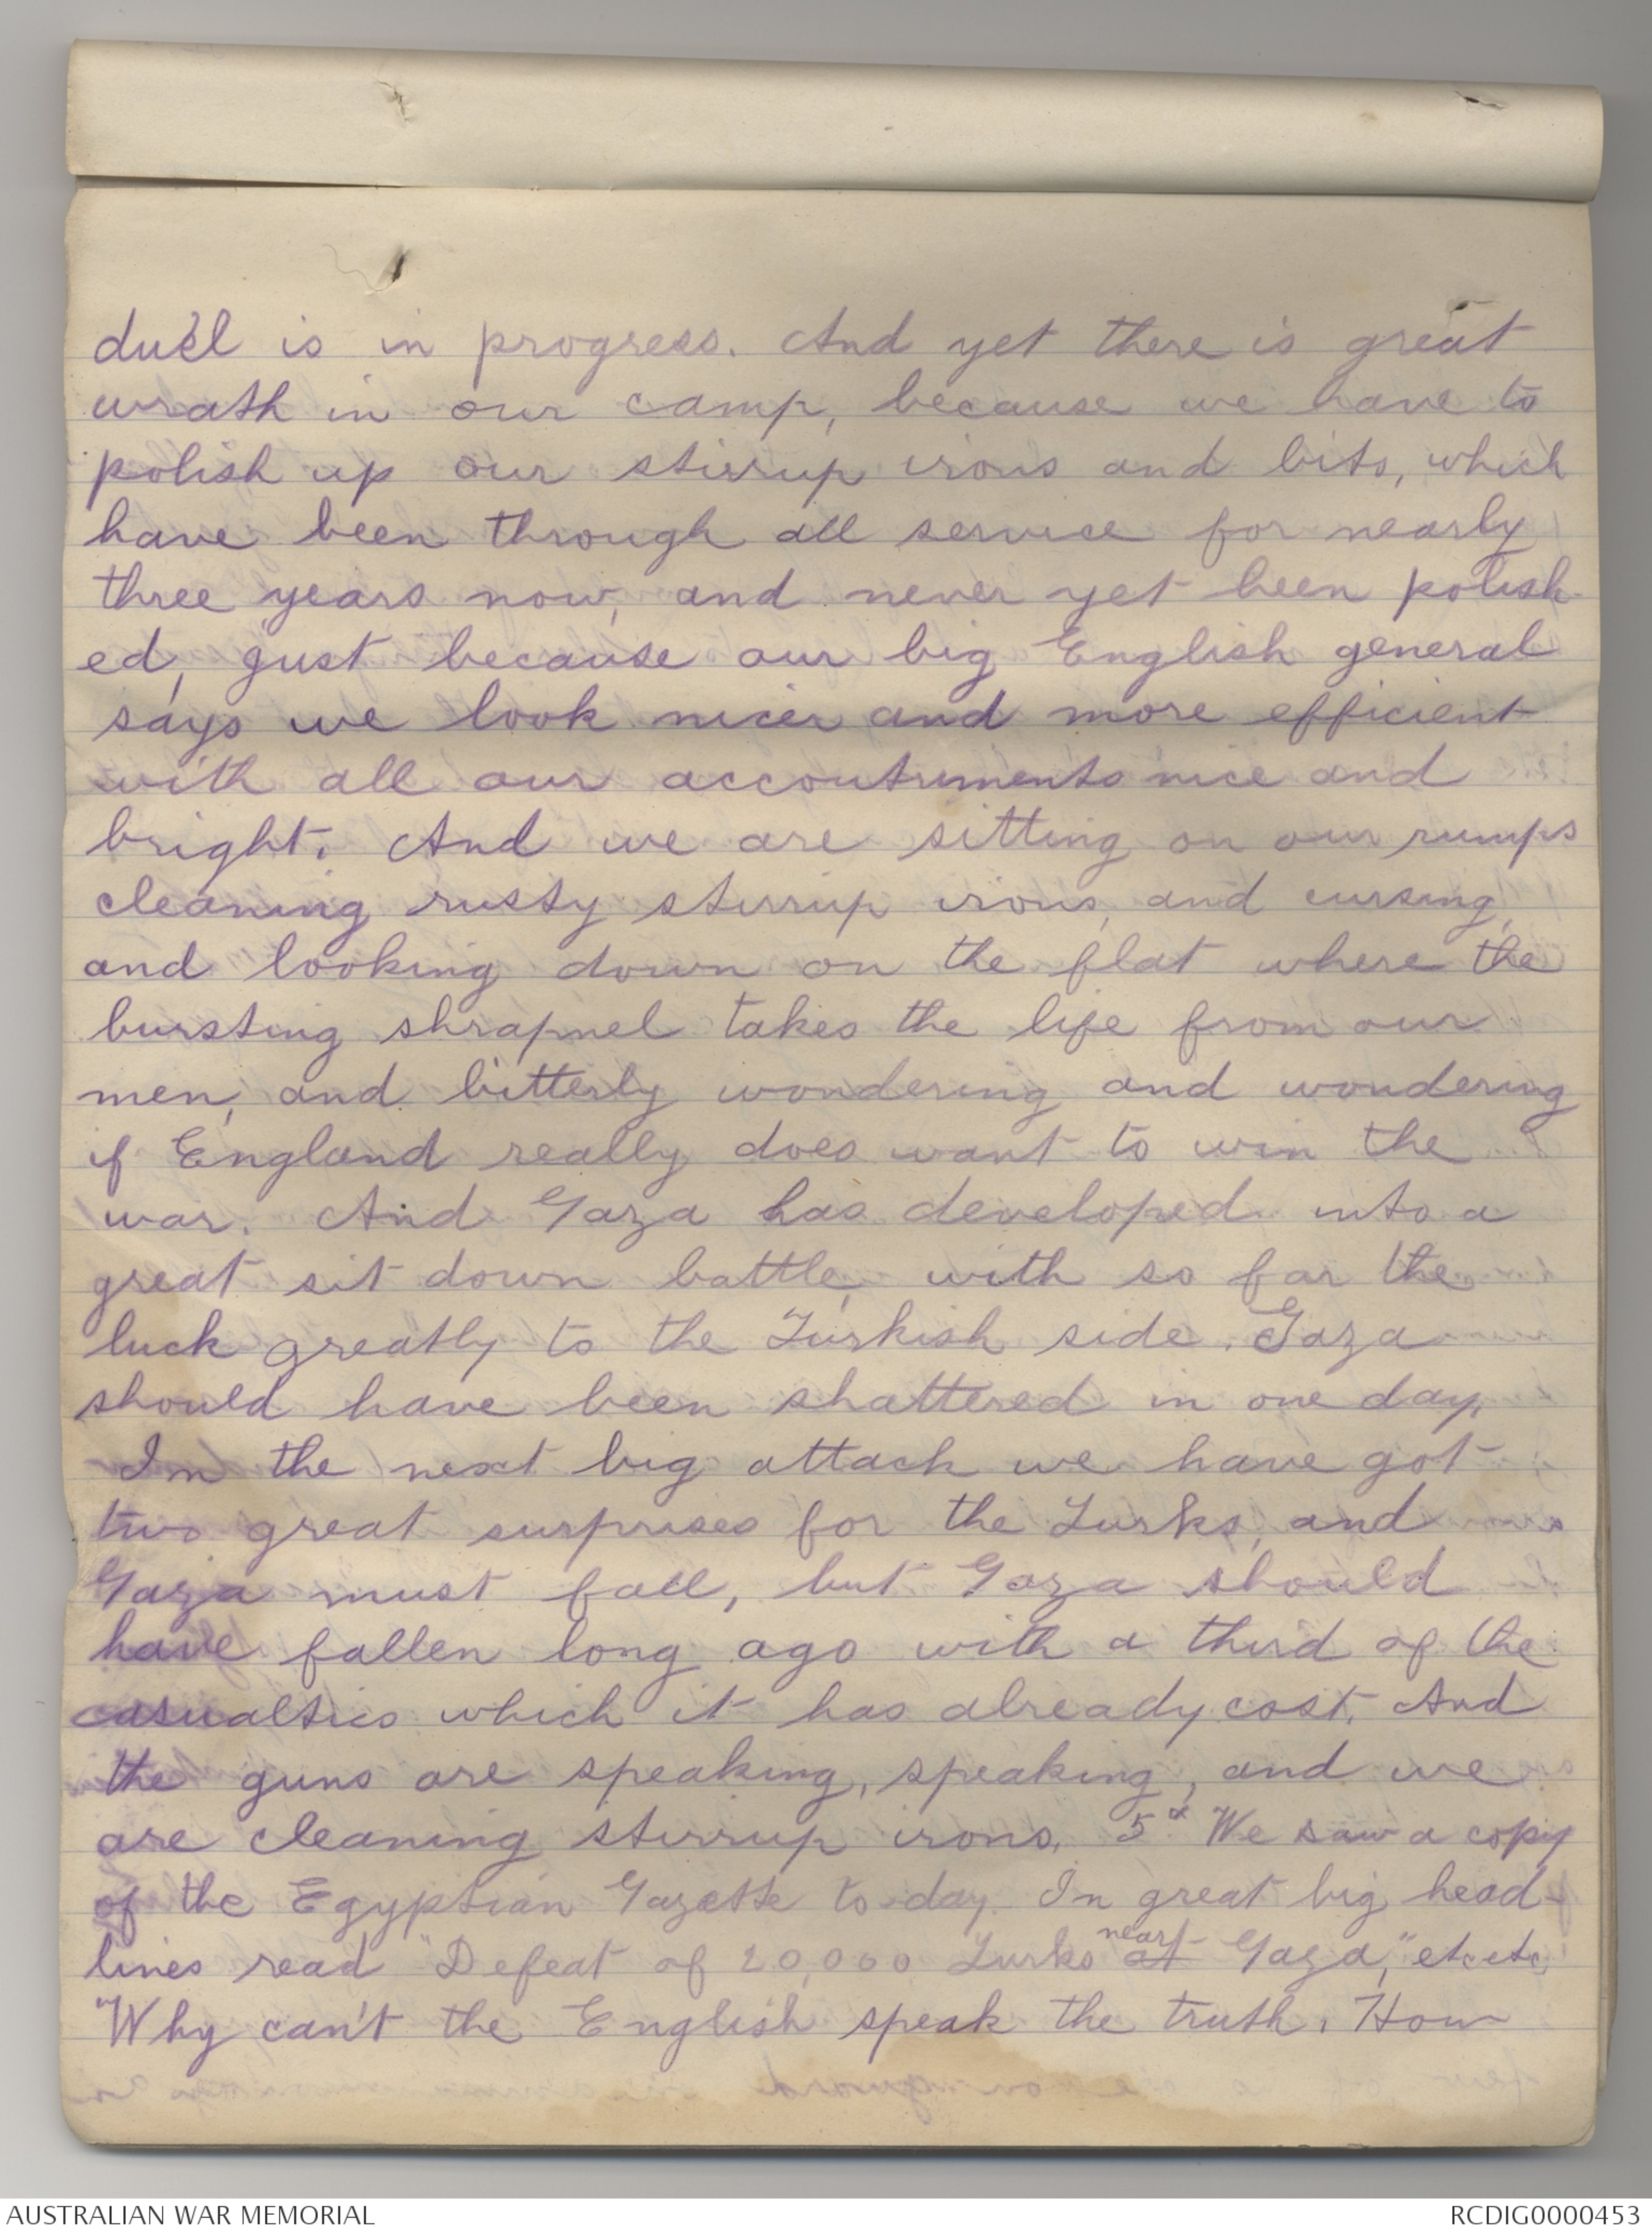 duel is in progress. And yet there is great
wrath in our camp, because we have to
polish up our stirrup irons and bits, which
have been through all service for nearly
three years now, and never yet been polish-
ed, just because our big English general
says we look nicer and more efficient
with all our accoutrements nice and
bright. And we are sitting on our rumps
cleaning rusty stirrup irons, and cursing,
and looking down on the flat where the
bursting shrapnel takes the life from our
men, and bitterly wondering and wondering
if England really does want to win the
war. And Gaza has developed into a
great sit down battle, with so far the
luck greatly to the Turkish side. Gaza
should have been shattered in one day.
In the next big attack we have got
two great surprises for the Turks, and
Gaza must fall, but Gaza should
have fallen long ago with a third of the
casualties which it has already cost. And
the guns are speaking, speaking, and we
are cleaning stirrup irons. 5th We saw a copy
of the Egyptian Gazette to-day. In great big head-
lines read "Defeat of 20,000 Turks near at Gaza," etc etc
"Why can't the English speak the truth. How
AUSTRALIAN WAR MEMORIAL
RCDIG0000453